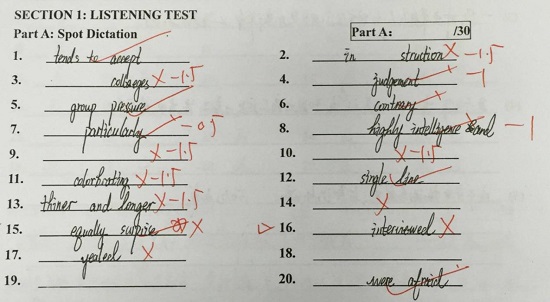 SECTION 1: LISTENING TEST
Part A: Spot Dictation
Part A: /30
1. tends to accept
2. in struction X -1.5
3. colleages X -1.5
4. judgement -1
5. group pressure
6. contrary
7. particularly -0.5
8. highly intelligence and -1
9. X -1.5
10. X -1.5
11. X -1.5
12. single line
13. thiner and longer X -1.5
14. X
15. equally suprise X
16. interviewed X
17. X
18.
19.
20. were afraid